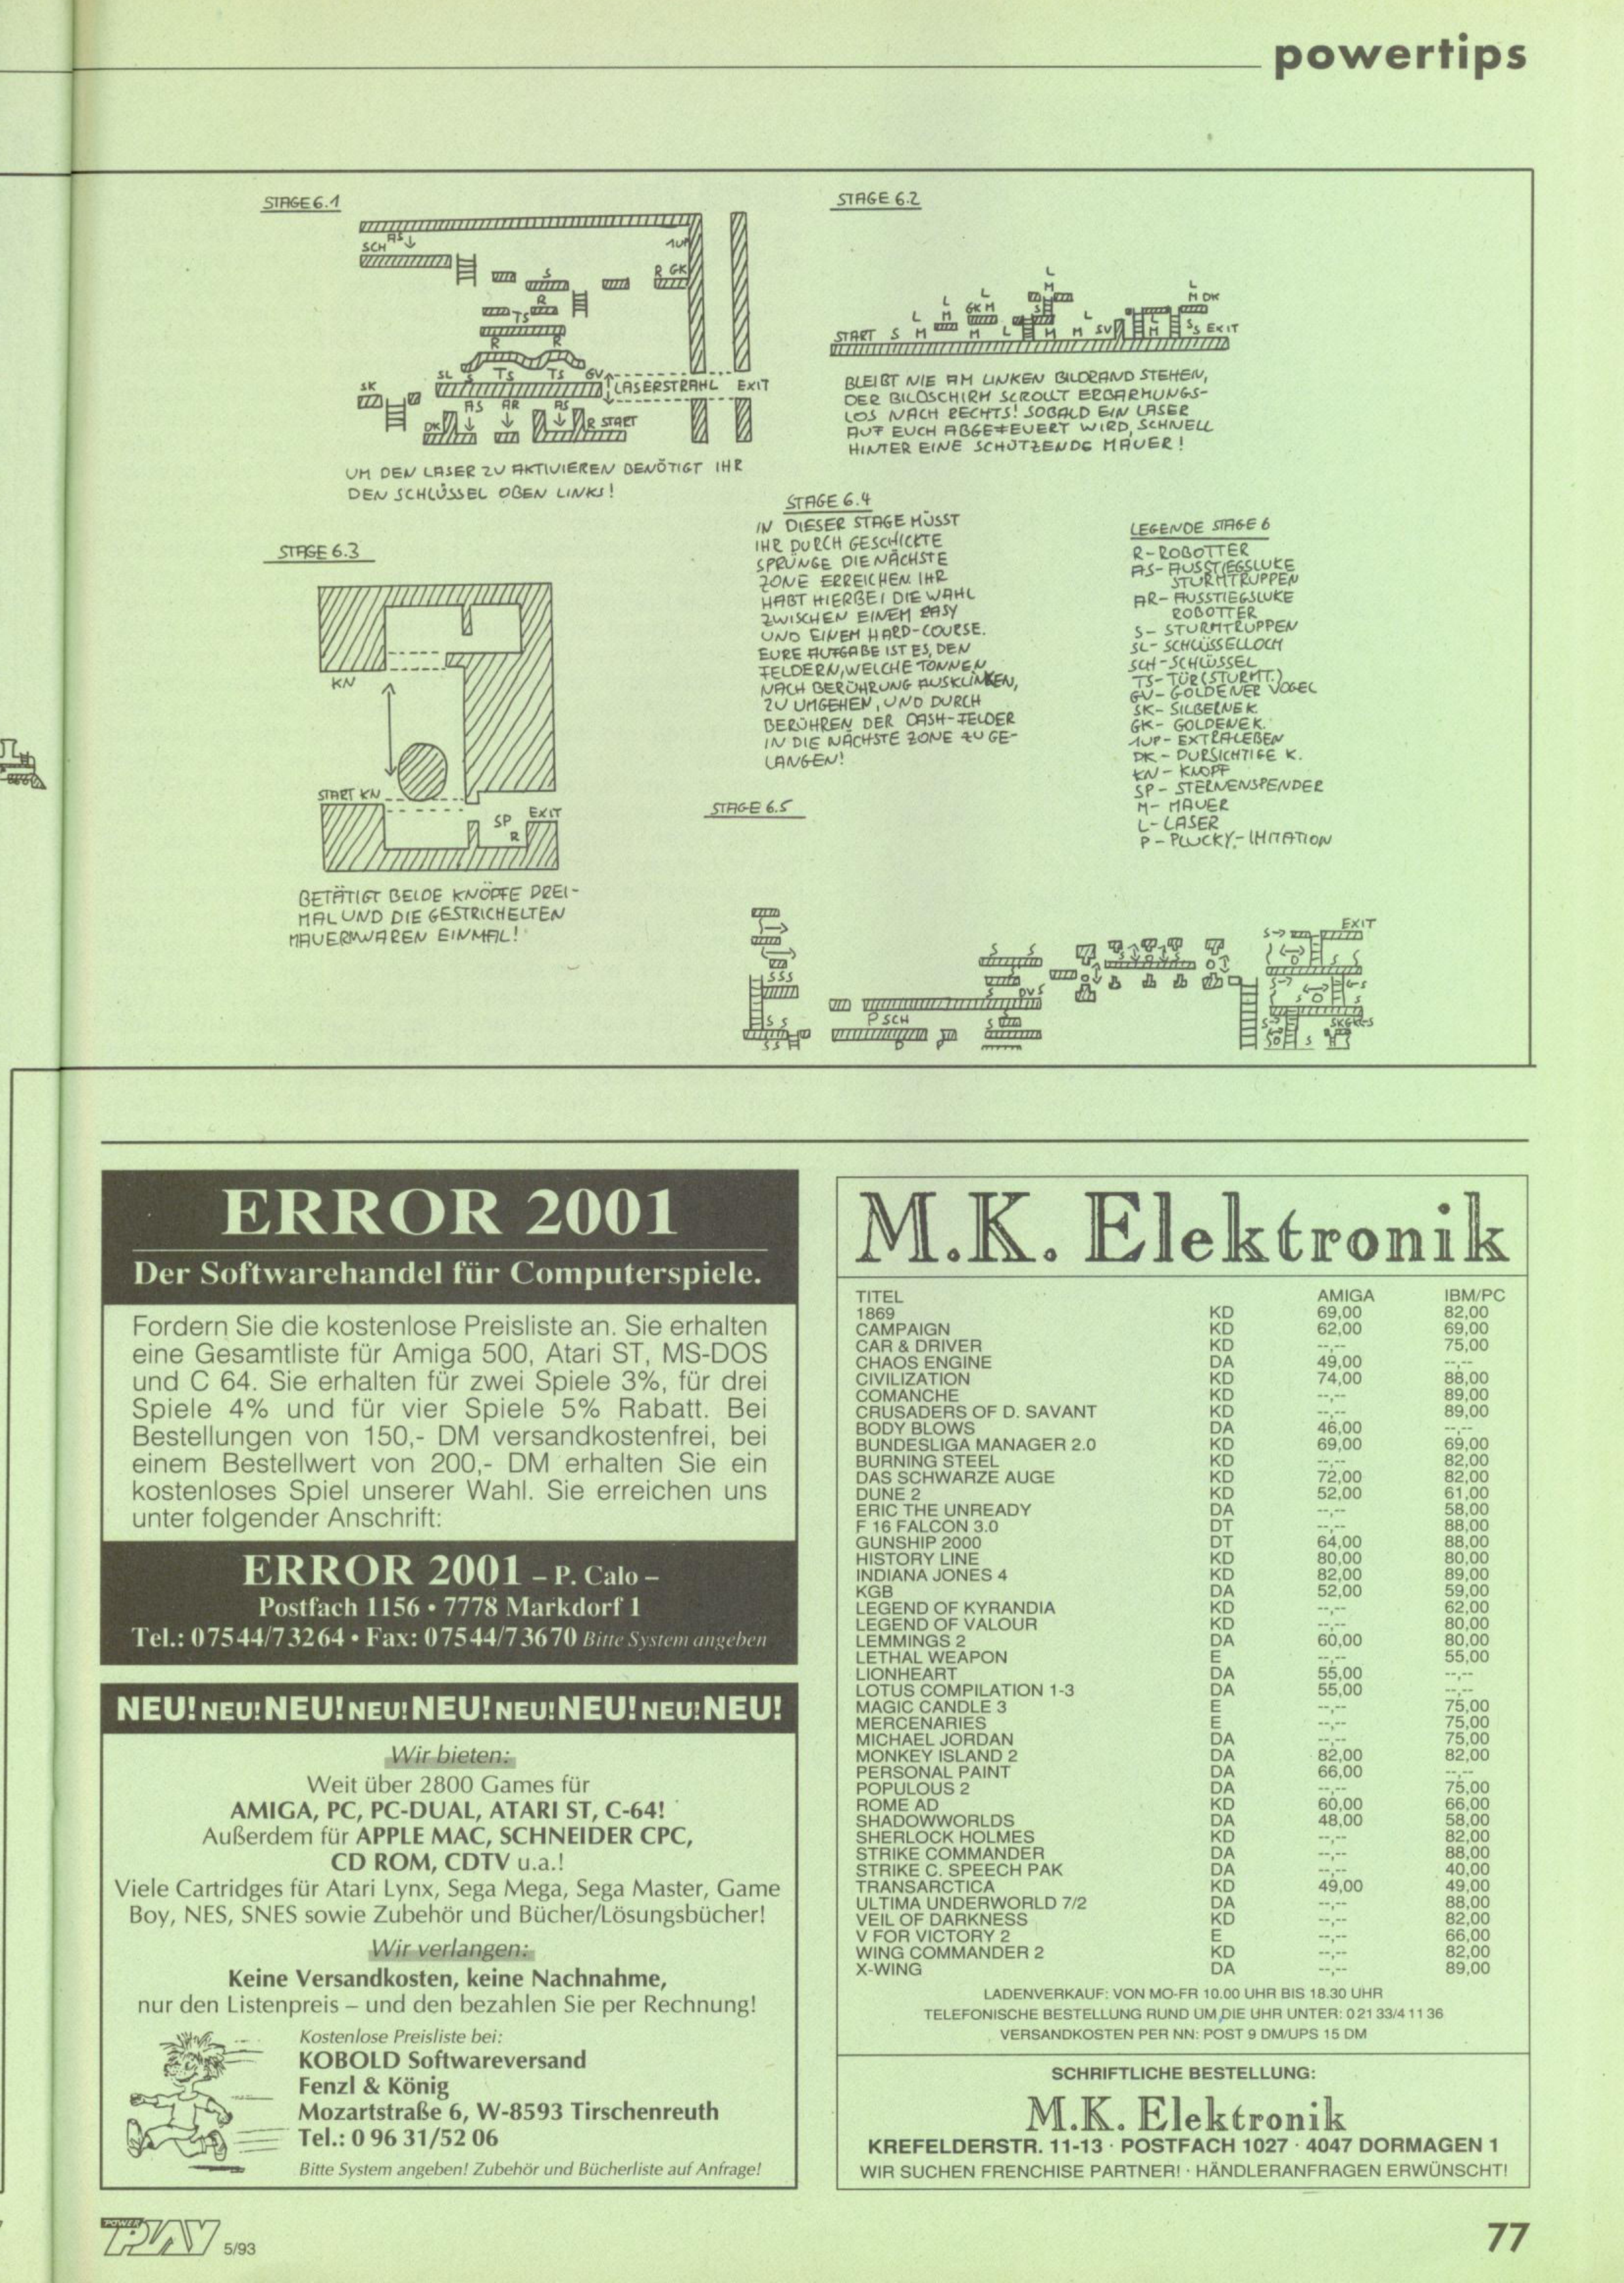 powertips
STAGE 6.1
SCH AS
1UP
S
R GK
R
TS
R R
SL S TS TS GV
LASERSTRAHL EXIT
SK
AS AR AS
DK
R START
UM DEN LASER ZU AKTIVIEREN BENÖTIGT IHR
DEN SCHLÜSSEL OBEN LINKS!
STAGE 6.2
START S M
SV
EXIT
BLEIBT NIE AM LINKEN BILDRAND STEHEN,
DER BILDSCHIRM SCROLLT ERBARMUNGS-
LOS NACH RECHTS! SOBALD EIN LASER
AUF EUCH ABGEFEUERT WIRD, SCHNELL
HINTER EINE SCHÜTZENDE MAUER!
STAGE 6.3
KN
START KN
SP EXIT
R
BETÄTIGT BEIDE KNÖPFE DREI-
MAL UND DIE GESTRICHELTEN
MAUERN WAREN EINMAL!
STAGE 6.4
IN DIESER STAGE MÜSST
IHR DURCH GESCHICKTE
SPRÜNGE DIE NÄCHSTE
ZONE ERREICHEN. IHR
HABT HIERBEI DIE WAHL
ZWISCHEN EINEM EASY
UND EINEM HARD-COURSE.
EURE AUFGABE IST ES, DEN
FELDERN, WELCHE TONNEN
NACH BERÜHRUNG AUSKLINKEN,
ZU UMGEHEN, UND DURCH
BERÜHREN DER CASH-FELDER
IN DIE NÄCHSTE ZONE ZU GE-
LANGEN!
LEGENDE STAGE 6
R-ROBOTTER
AS-AUSSTIEGSLUKE
STURMTRUPPEN
AR-AUSSTIEGSLUKE
ROBOTTER
S-STURMTRUPPEN
SL-SCHLÜSSELLOCH
SCH-SCHLÜSSEL
TS-TÜR (STURMT.)
GV-GOLDENER VOGEL
SK-SILBERNE K.
GK-GOLDENE K.
1UP-EXTRALEBEN
DK-DURSICHTIGE K.
KN-KNOPF
SP-STERNENSPENDER
M-MAUER
L-LASER
P-PLUCKY-IMITATION
STAGE 6.5
SSS
P SCH
EXIT
ERROR 2001
Der Softwarehandel für Computerspiele.
Fordern Sie die kostenlose Preisliste an. Sie erhalten
eine Gesamtliste für Amiga 500, Atari ST, MS-DOS
und C 64. Sie erhalten für zwei Spiele 3%, für drei
Spiele 4% und für vier Spiele 5% Rabatt. Bei
Bestellungen von 150,- DM versandkostenfrei, bei
einem Bestellwert von 200,- DM erhalten Sie ein
kostenloses Spiel unserer Wahl. Sie erreichen uns
unter folgender Anschrift:
ERROR 2001 – P. Calo –
Postfach 1156 • 7778 Markdorf 1
Tel.: 07544/73264 • Fax: 07544/73670 Bitte System angeben
NEU! NEU! NEU! NEU! NEU! NEU! NEU! NEU! NEU!
Wir bieten:
Weit über 2800 Games für
AMIGA, PC, PC-DUAL, ATARI ST, C-64!
Außerdem für APPLE MAC, SCHNEIDER CPC,
CD ROM, CDTV u.a.!
Viele Cartridges für Atari Lynx, Sega Mega, Sega Master, Game
Boy, NES, SNES sowie Zubehör und Bücher/Lösungsbücher!
Wir verlangen:
Keine Versandkosten, keine Nachnahme,
nur den Listenpreis – und den bezahlen Sie per Rechnung!
Kostenlose Preisliste bei:
KOBOLD Softwareversand
Fenzl & König
Mozartstraße 6, W-8593 Tirschenreuth
Tel.: 0 96 31/52 06
Bitte System angeben! Zubehör und Bücherliste auf Anfrage!
M.K. Elektronik
TITEL AMIGA IBM/PC
1869 KD 69,00 82,00
CAMPAIGN KD 62,00 69,00
CAR & DRIVER KD --,-- 75,00
CHAOS ENGINE DA 49,00 --,--
CIVILIZATION KD 74,00 88,00
COMANCHE KD --,-- 89,00
CRUSADERS OF D. SAVANT KD --,-- 89,00
BODY BLOWS DA 46,00 --,--
BUNDESLIGA MANAGER 2.0 KD 69,00 69,00
BURNING STEEL KD --,-- 82,00
DAS SCHWARZE AUGE KD 72,00 82,00
DUNE 2 KD 52,00 61,00
ERIC THE UNREADY DA --,-- 58,00
F 16 FALCON 3.0 DT --,-- 88,00
GUNSHIP 2000 DT 64,00 88,00
HISTORY LINE KD 80,00 80,00
INDIANA JONES 4 KD 82,00 89,00
KGB DA 52,00 59,00
LEGEND OF KYRANDIA KD --,-- 62,00
LEGEND OF VALOUR KD --,-- 80,00
LEMMINGS 2 DA 60,00 80,00
LETHAL WEAPON E --,-- 55,00
LIONHEART DA 55,00 --,--
LOTUS COMPILATION 1-3 DA 55,00 --,--
MAGIC CANDLE 3 E --,-- 75,00
MERCENARIES E --,-- 75,00
MICHAEL JORDAN DA --,-- 75,00
MONKEY ISLAND 2 DA 82,00 82,00
PERSONAL PAINT DA 66,00 --,--
POPULOUS 2 DA --,-- 75,00
ROME AD KD 60,00 66,00
SHADOWWORLDS DA 48,00 58,00
SHERLOCK HOLMES KD --,-- 82,00
STRIKE COMMANDER DA --,-- 88,00
STRIKE C. SPEECH PAK DA --,-- 40,00
TRANSARCTICA KD 49,00 49,00
ULTIMA UNDERWORLD 7/2 DA --,-- 88,00
VEIL OF DARKNESS KD --,-- 82,00
V FOR VICTORY 2 E --,-- 66,00
WING COMMANDER 2 KD --,-- 82,00
X-WING DA --,-- 89,00
LADENVERKAUF: VON MO-FR 10.00 UHR BIS 18.30 UHR
TELEFONISCHE BESTELLUNG RUND UM DIE UHR UNTER: 0 21 33/4 11 36
VERSANDKOSTEN PER NN: POST 9 DM/UPS 15 DM
SCHRIFTLICHE BESTELLUNG:
M.K. Elektronik
KREFELDERSTR. 11-13 · POSTFACH 1027 · 4047 DORMAGEN 1
WIR SUCHEN FRENCHISE PARTNER! · HÄNDLERANFRAGEN ERWÜNSCHT!
POWER PLAY 5/93
77